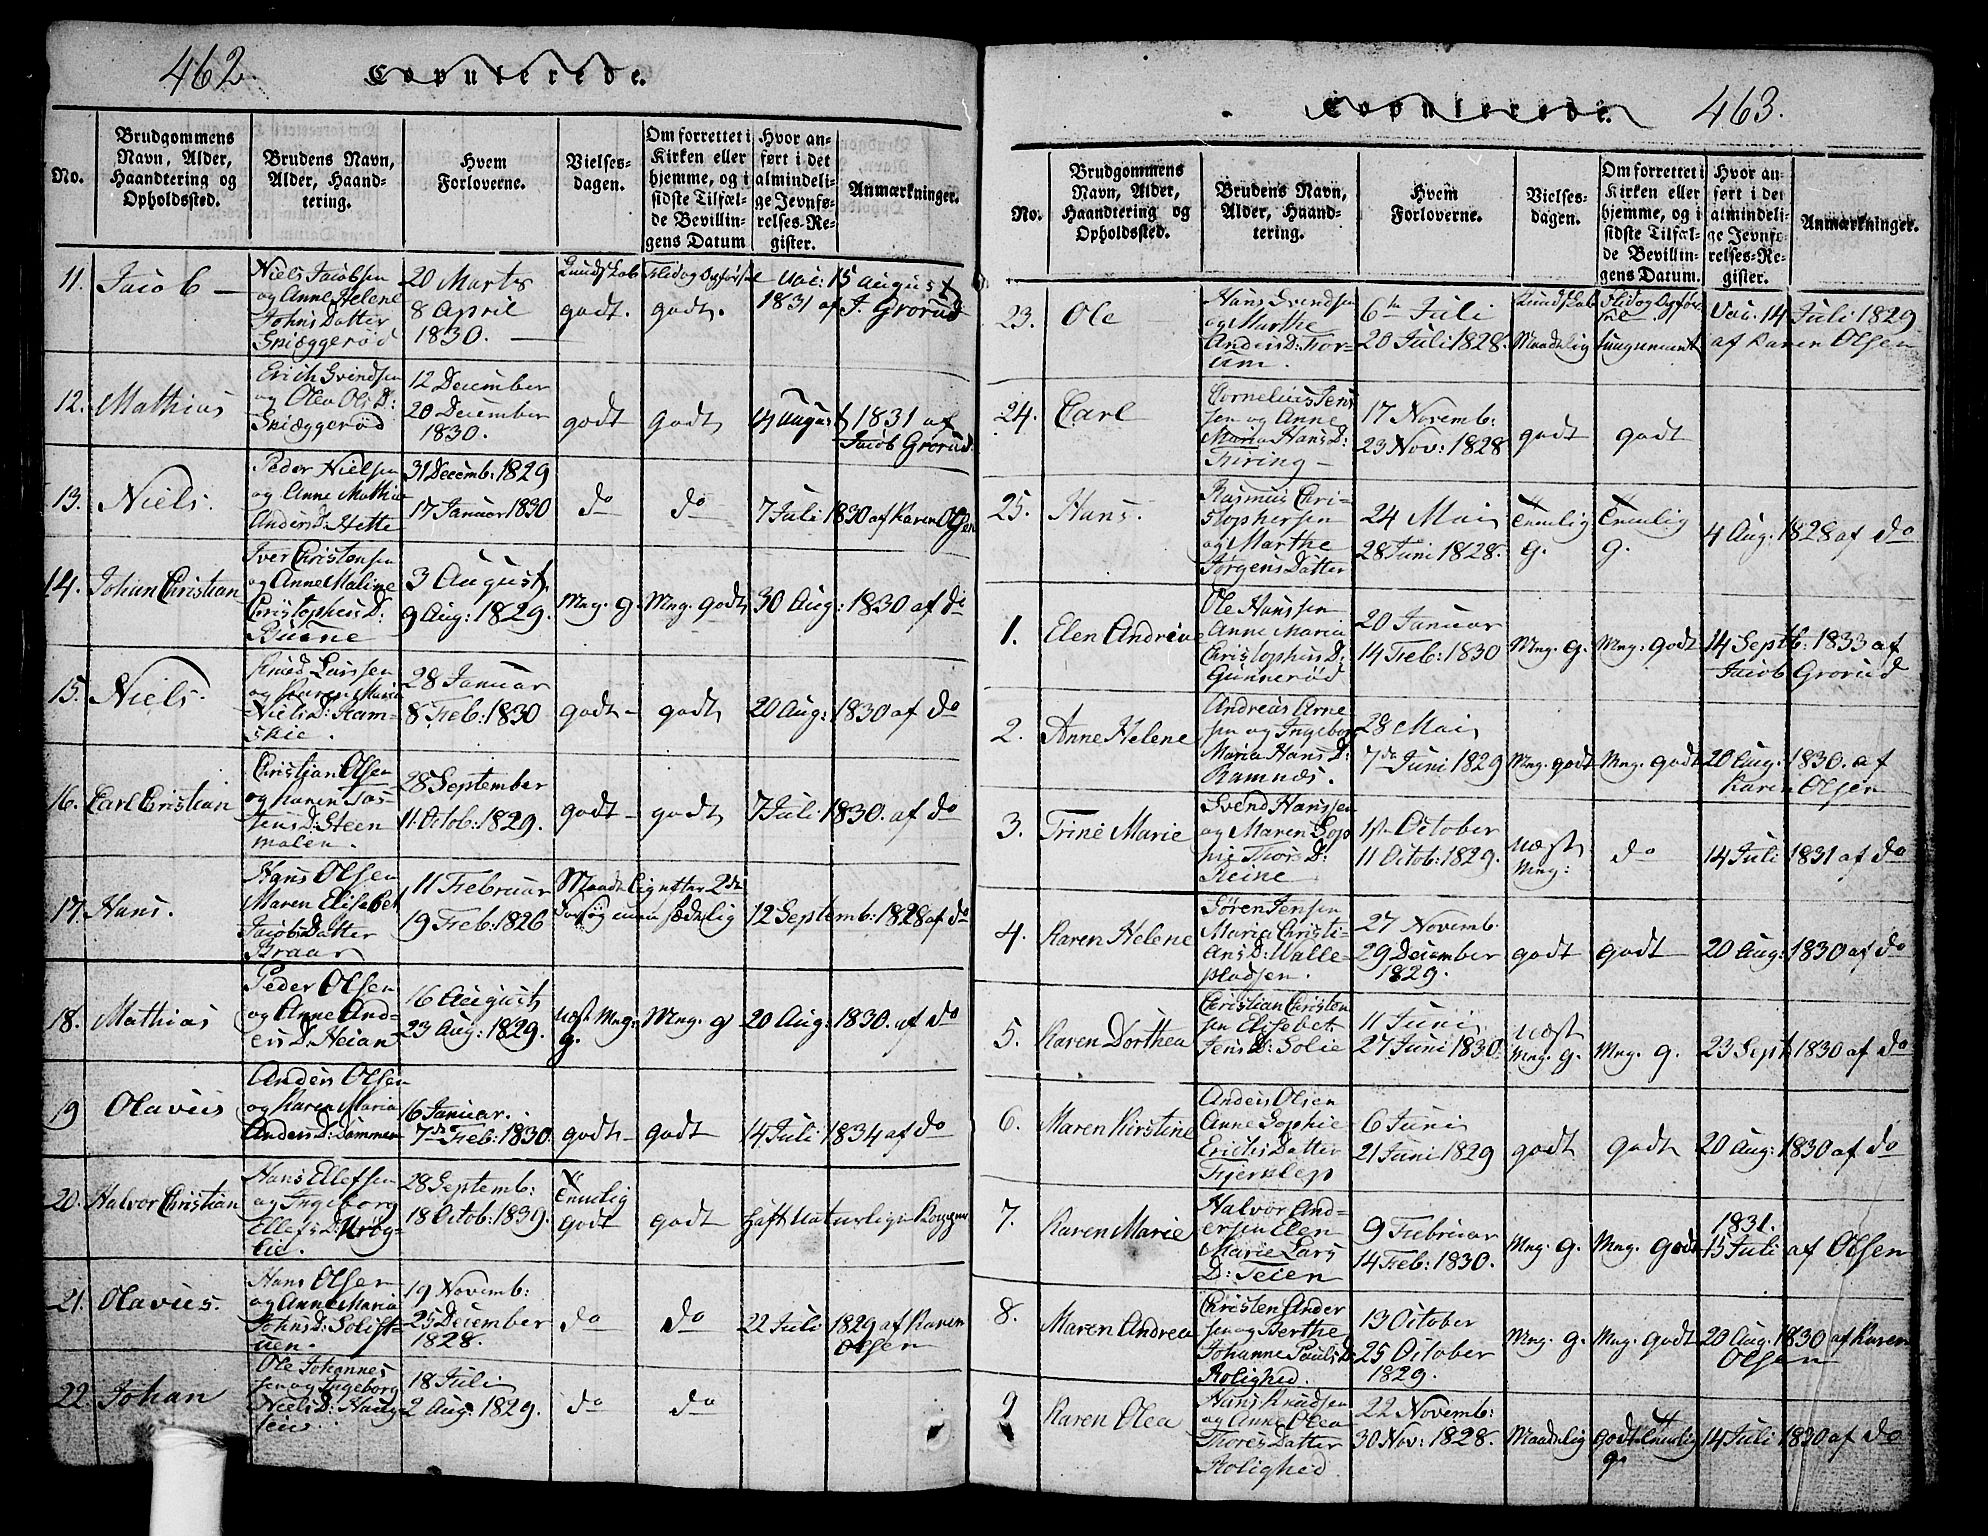 462
Copulerede.
No.
Brudgommens
Navn, Alder,
Haandtering og
Opholdssted.
Brudens Navn,
Alder, Haand-
tering.
Hvem
Forloverne.
Vielses-
dagen.
Om forrettet i
Kirken eller
hjemme, og i
sidste Tilfæl-
de Bevillin-
gens Datum
Hvor an-
ført i det
almindeli-
ge Jevnfø-
relses-Re-
gister.
Anmærkninger.
11. Jacob
Niels Jacobsen
og Anne Helene
Johns Datter
Sniæggerød
20 Marts
8 April
1830.
Kundskab
godt.
Flid og Opførsel
godt.
Vac: 15 August
1831 af J. Grorud
12. Mathias
Erich Svendsen
og Olea Ols D:
Sniæggerød
12 December
20 December
1830.
godt
godt
14 August 1831 af
Jacob Grorud
13. Niels.
Peder Nielsen
og Anne Mathia
Anders D: Hette
31 Decemb: 1829
17 Januar 1830
do
do
7 Juli 1830 af Karen Olsen
14. Johan Christian
Iver Christensen
og Anne Maline
Christophers D:
3 August
9 Aug: 1829.
Mng. g.
Mng. godt
30 Aug: 1830 af do
15. Niels.
Knud Larssen
og Karen Maria
Niels D: Ram-
skie.
28 Januar
8 Feb: 1830
godt
godt
20 Aug: 1830 af do
16. Carl Christian
Christian Olsen
og Karen Tos
tens D: Steen
malen.
28 September
11 Octob: 1829.
godt
godt
7 Juli 1830. af do
17. Hans.
Hans Olsen
Maren Elisabet
Jacobs Datter
Braar
11 Februar
19 Feb: 1826
Maadelig efter 2de
Forsøg
sædelig
12 Septemb: 1828 af do
18. Mathias
Peder Olsen
og Anne And-
ers D: Heian
16 August
23 Aug: 1829.
næst Mng:
g.
Mng. g
20 Aug: 1830. af do
19 Olavus
Anders Olsen
og Karen Maria
Anders D: Dammen
16 Januar.
7de Feb: 1830.
godt
godt
14 Juli 1834 af do
20. Halvor Christian
Hans Ellefsen
og Ingeborg
Ellefs D:
lie.
28 Septemb:
18 Octob: 1839.
Temlig
godt
godt
Haft Naturlige Kopper
21. Olavus.
Hans Olsen
og Anne Maria
Johns D: Solist-
uen.
19 Novemb:
25 December
1828.
do
do
22 Juli 1829 af Karen
Olsen
22. Johan
Ole Johannes
sen og Ingeborg
Niels D: Haug
18 Juli
2 Aug: 1829.
do
do
Copulerede. 463.
No.
Brudgommens
Navn, Alder,
Haandtering og
Opholdssted.
Brudens Navn,
Alder, Haand-
tering.
Hvem
Forloverne.
Vielses-
dagen.
Om forrettet i
Kirken eller
hjemme, og i
sidste Tilfæl-
de Bevillin-
gens Datum.
Hvor an-
ført i det
almindeli-
ge Jevnfø-
relses-Re-
gister.
Anmærkninger.
23. Ole
Hans Svendsen
og Marthe
Anders D: Tor-
um.
6te Juli
20 Juli 1828.
Kundskab
Maadelig
Flid og Opfør
sel
Vac. 14 Juli 1829
af Karen Olsen
24. Carl
Cornelius Jens
sen og Anne
Maria Hans D:
Firing
17 Novemb:
23 Nov: 1828
godt
godt
25. Hans.
Rasmus Chri-
stophersen
og Marthe
Jørgens Datter
24 Mai
28 Juni 1828.
Temlig
g.
Temlig
g.
4 Aug: 1828 af do
1. Elen Andrea
Ole Hanssen
Anne Maria
Christophers D:
Gunnerød
20 Januar
14 Feb: 1830
Mng. g.
Mng. godt
14 Septb: 1833 af
Jacob Grorud
2. Anne Helene
Andreas Arne
sen og Ingebor
Maria Hans D:
Ramnæs.
28 Mai
7de Juni 1829
Mng. godt
Mng. godt
20 Aug: 1830. af
Karen Olsen
3. Trine Marie
Svend Hanssen
og Maren Sop
hie Thors D:
Reine
1ste October
11 Octob: 1829.
næst
Mng:
do
14 Juli 1831 af do
4. Karen Helene
Søren Jensen
Maria Christi-
ans D: Walle
pladsen.
27 Novemb.
29 December
1829.
godt
godt
20 Aug: 1830 af do
5. Karen Dorthea
Christian Christen
sen Elisabet
Jens D: Solie
11 Juni
27 Juni 1830.
næst
Mng. g.
Mng. g.
23 Sept 1830 af do
6. Maren Kirstine
Anders Olsen
Anne Sophie
Erichs Datter
6 Juni
21 Juni 1829
godt
godt
20 Aug: 1830 af do
7. Karen Marie
Halvor And-
ersen Elen
Marie Lars
D: Teien
9 Februar
14 Feb: 1830.
Mng. g.
Mng. godt
1831.
15 Juli af Olsen
8. Maren Andrea
Christen Ander
sen og Berthe
Johanne Pauls D
Rolighed.
13 October
25 October
1829.
Mng. g.
Mng. godt
20 Aug. 1830 af Karen
Olsen
9 Karen Olea
Hans Knudsen
og Anne Olea
Thores Datter
Rolighed
22 Novemb:
30 Nov: 1828.
Maadelig
godt temlig
g.
14 Juli 1830 af do